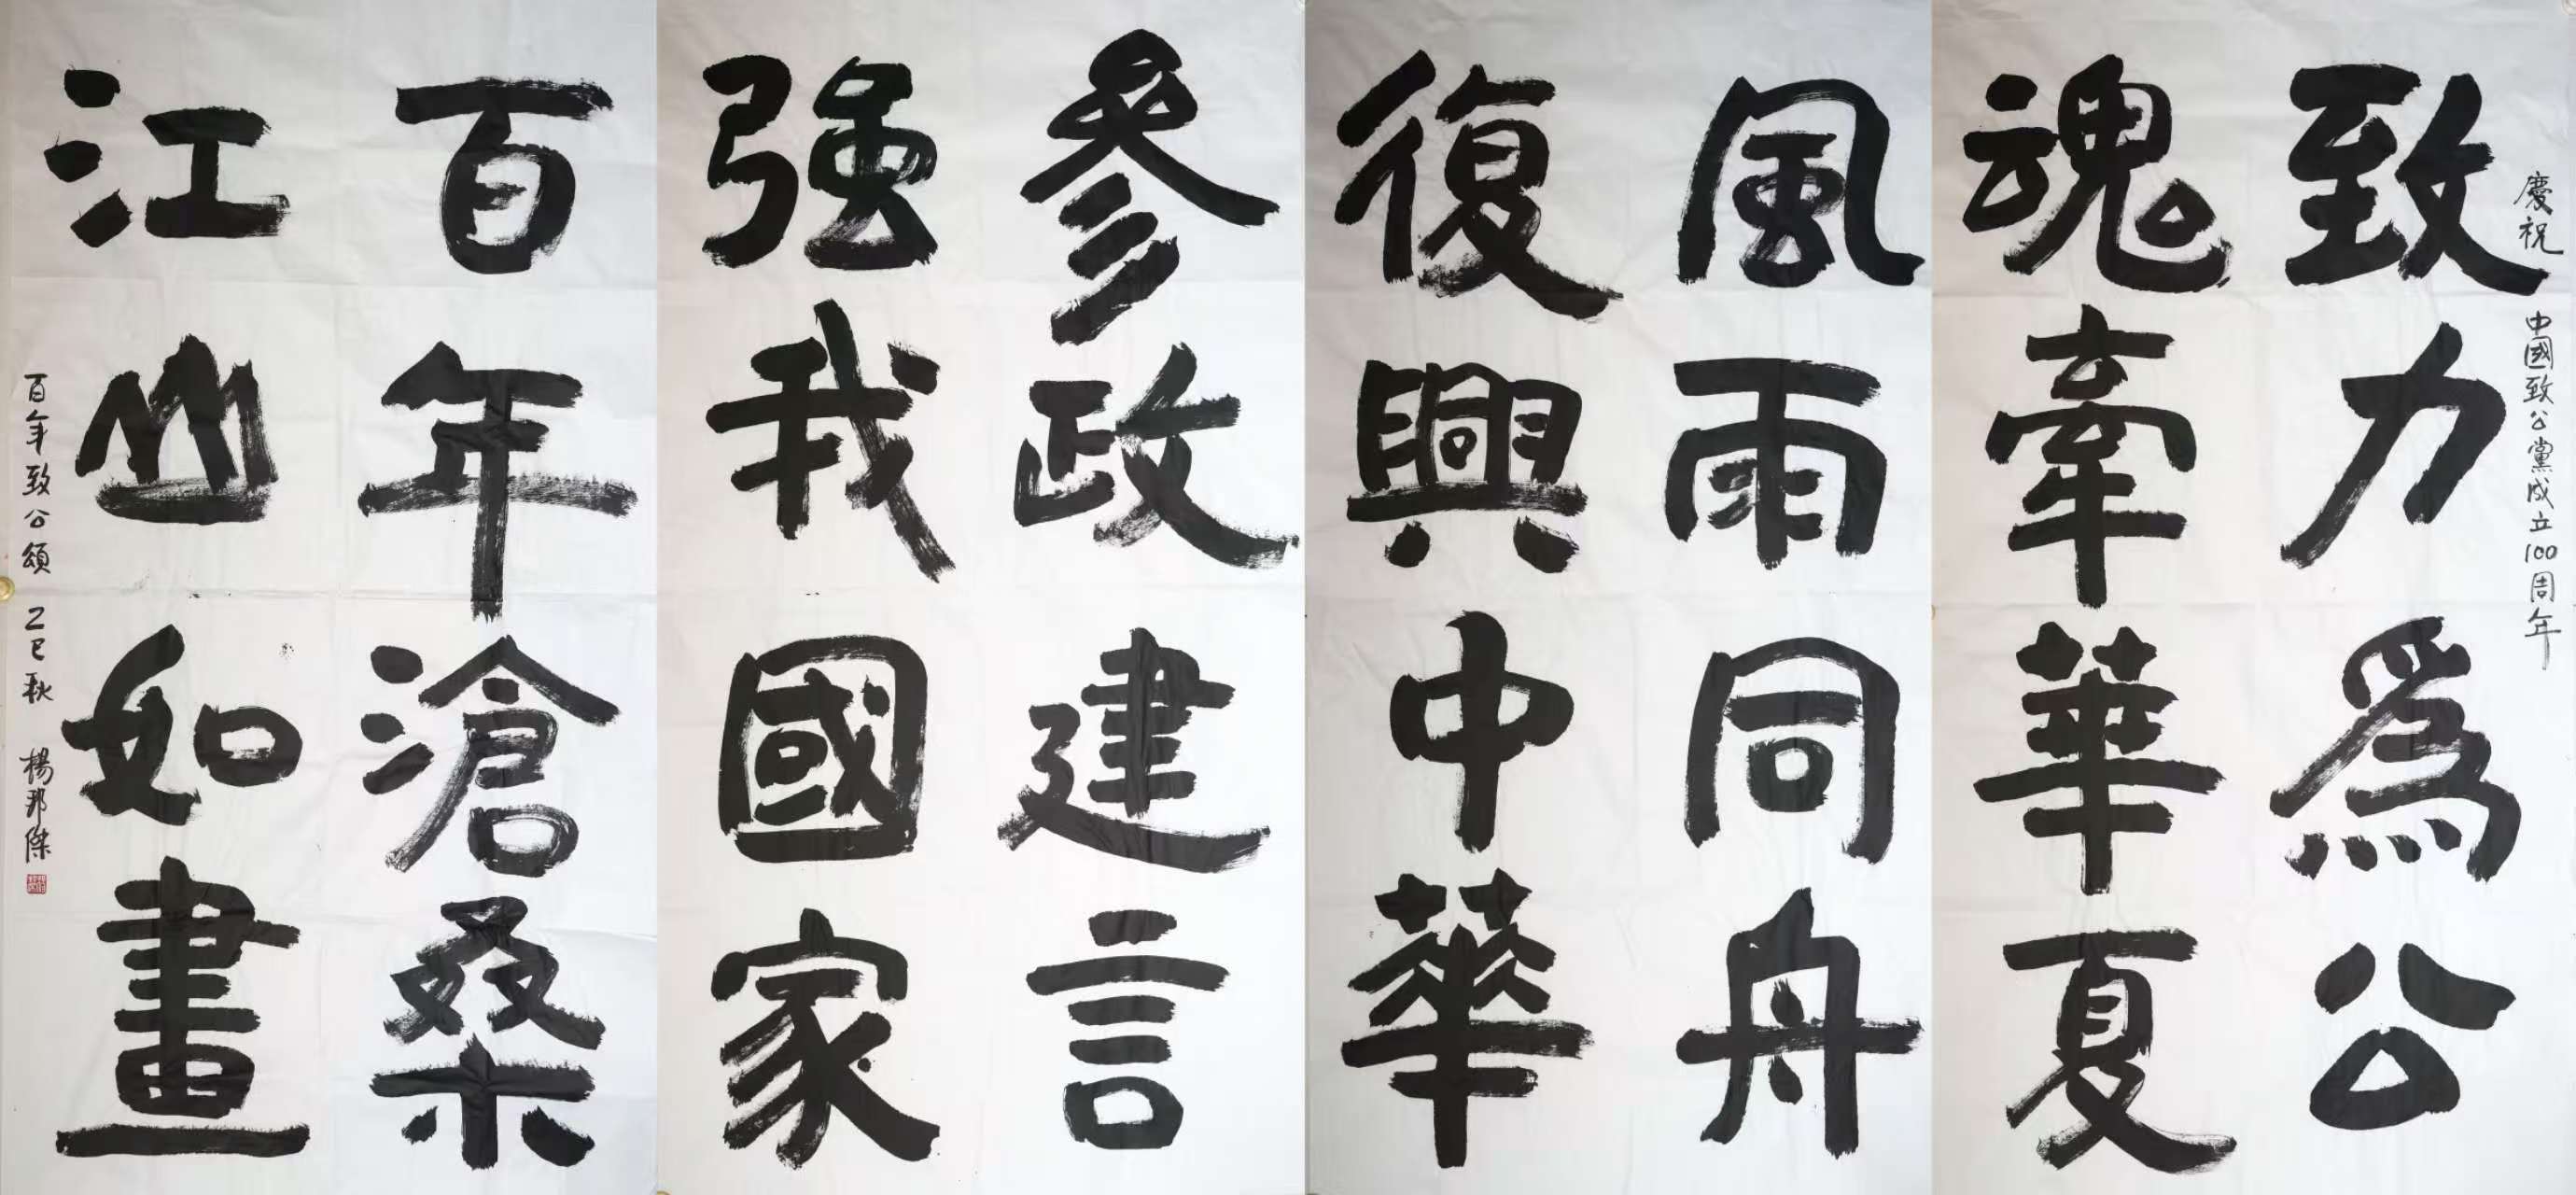 慶祝中國致公黨成立100周年
致力爲公
魂牽華夏
風雨同舟
復興中華
參政建言
強我國家
百年滄桑
江山如畫
百年致公頌 乙巳秋 楊邦傑